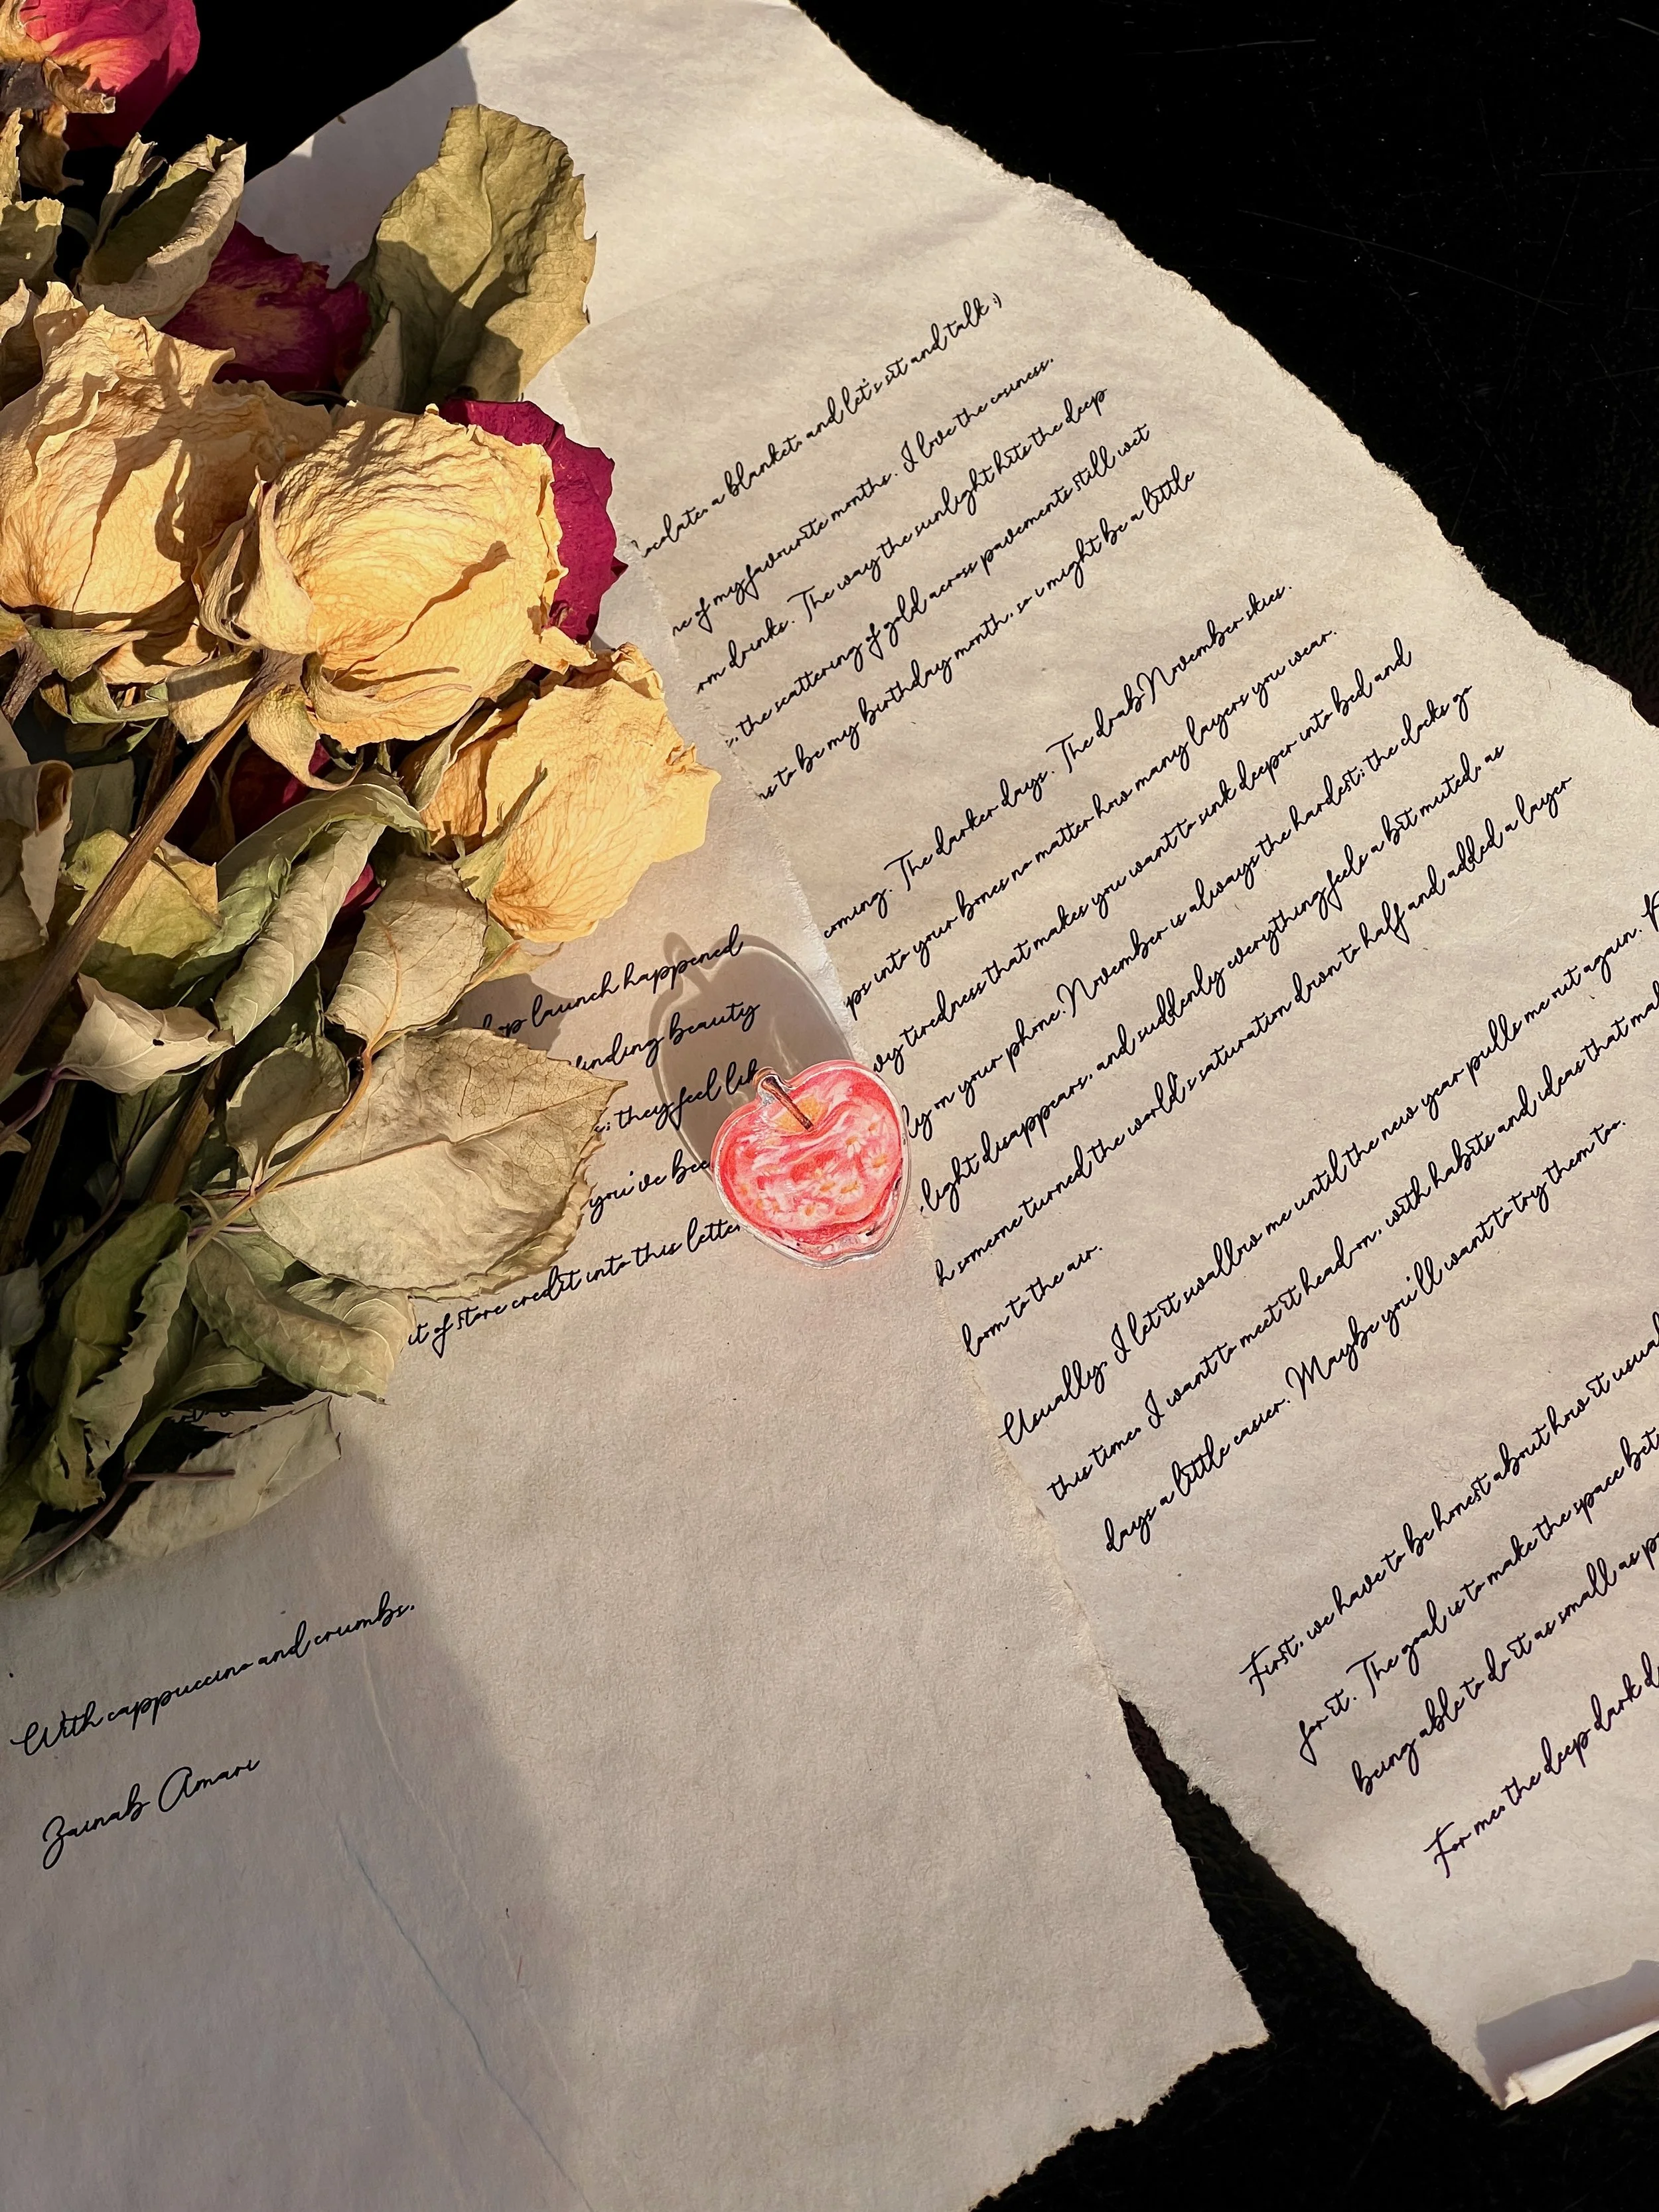 a blanket, and let's sit and talk :)
of my favourite months. I love the cosiness.
drinks. The way the sunlight hits the deep
the scattering of gold across pavements still wet
to be my birthday month, so i might be a little
The darker days. The drab November skies.
into your bones no matter how many layers you wear.
tiredness that makes you want to sink deeper into bed and
on your phone. November is always the hardest; the clocks go
light disappears, and suddenly everything feels a bit muted, as
someone turned the world's saturation down to half and added a layer
to the air.
Usually, I let it swallow me until the new year pulls me out again.
this time, I want to meet it head-on, with habits and ideas that
days a little easier. Maybe you'll want to try them too.
First, we have to be honest about how it
for it. The goal is to make the space
being able to do it as small as
For me, the deep dark
launch happened
finding beauty
they feel
you've
of store credit into this letter
With cappuccino and crumbs,
Zainab Amari